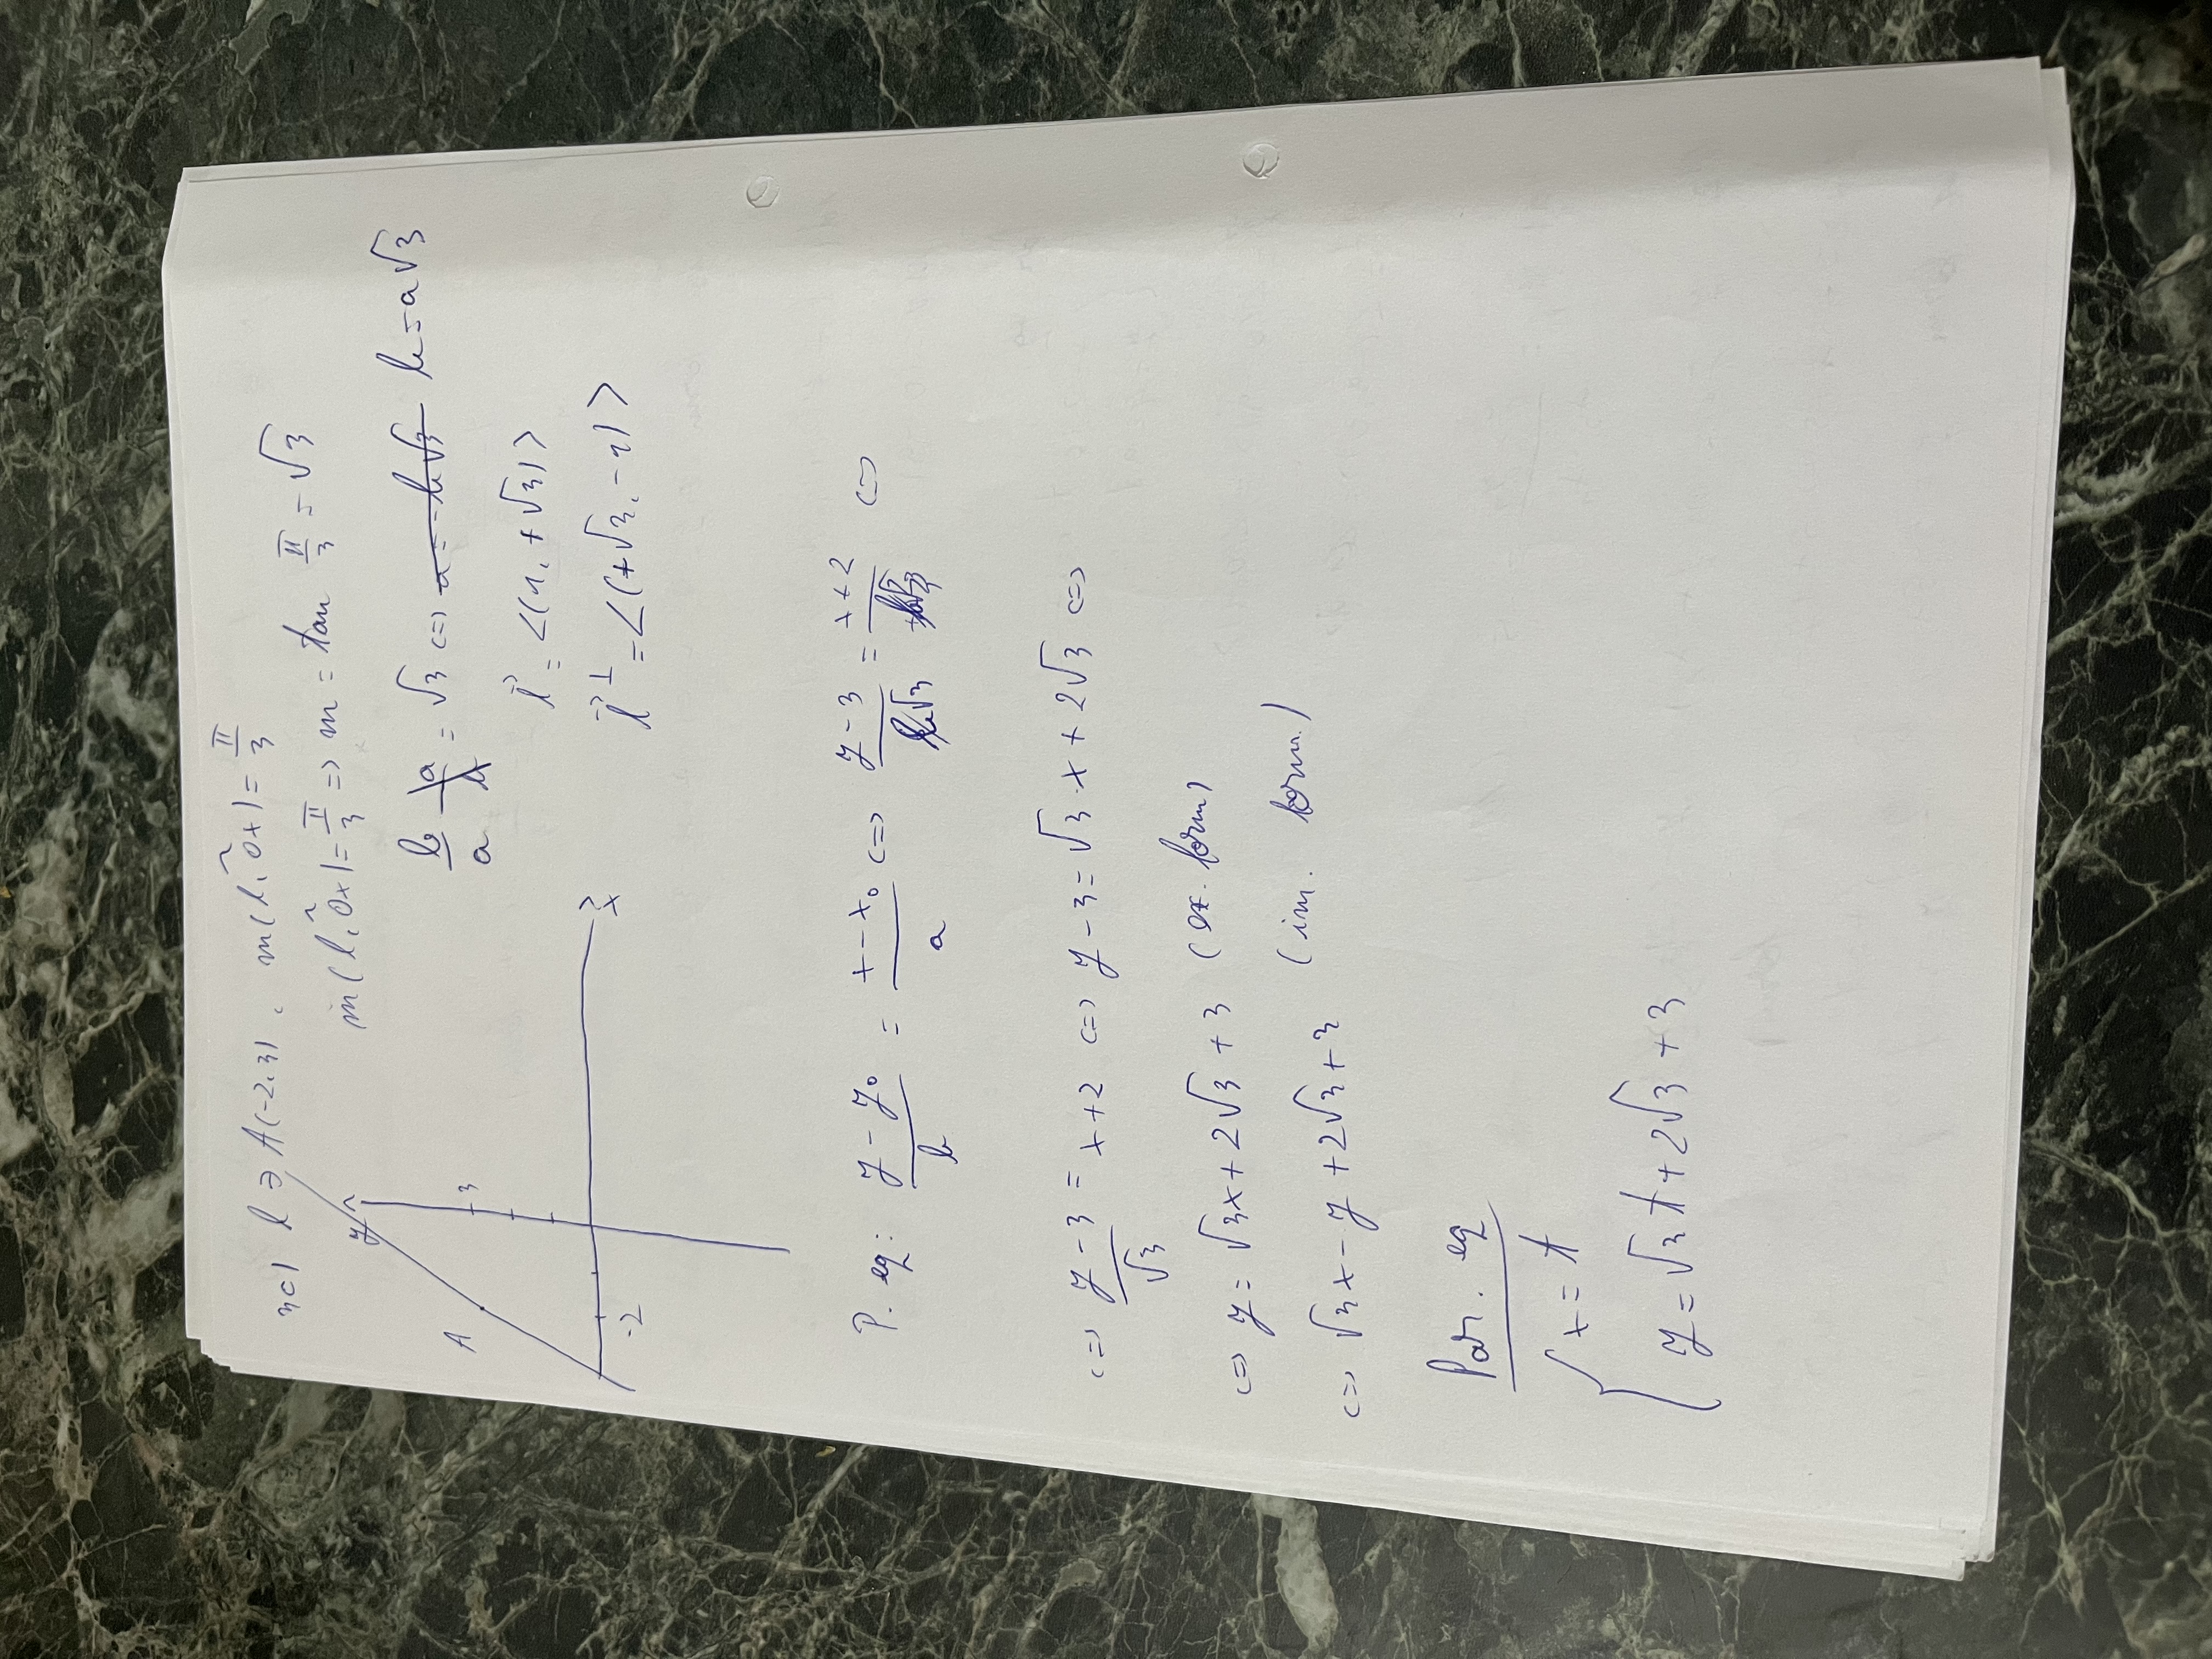 3c) l ∋ A(-2,3), m(l,^Ox) = π/3
m(l,^Ox) = π/3 => m = tan π/3 = √3
b/a = √3 <=> b = a√3
l⃗ = <(1, +√3)>
l⃗^⊥ = <(+√3, -1)>
y
A
3
-2
x
P. eq: (y - y₀)/b = (x - x₀)/a <=> (y - 3)/√3 = (x + 2)/1 <=>
<=> (y - 3)/√3 = x + 2 <=> y - 3 = √3 · x + 2√3 <=>
<=> y = √3x + 2√3 + 3 (ex. form)
<=> √3x - y + 2√3 + 3 (im. form.)
Par. eq
{ x = t
y = √3 t + 2√3 + 3